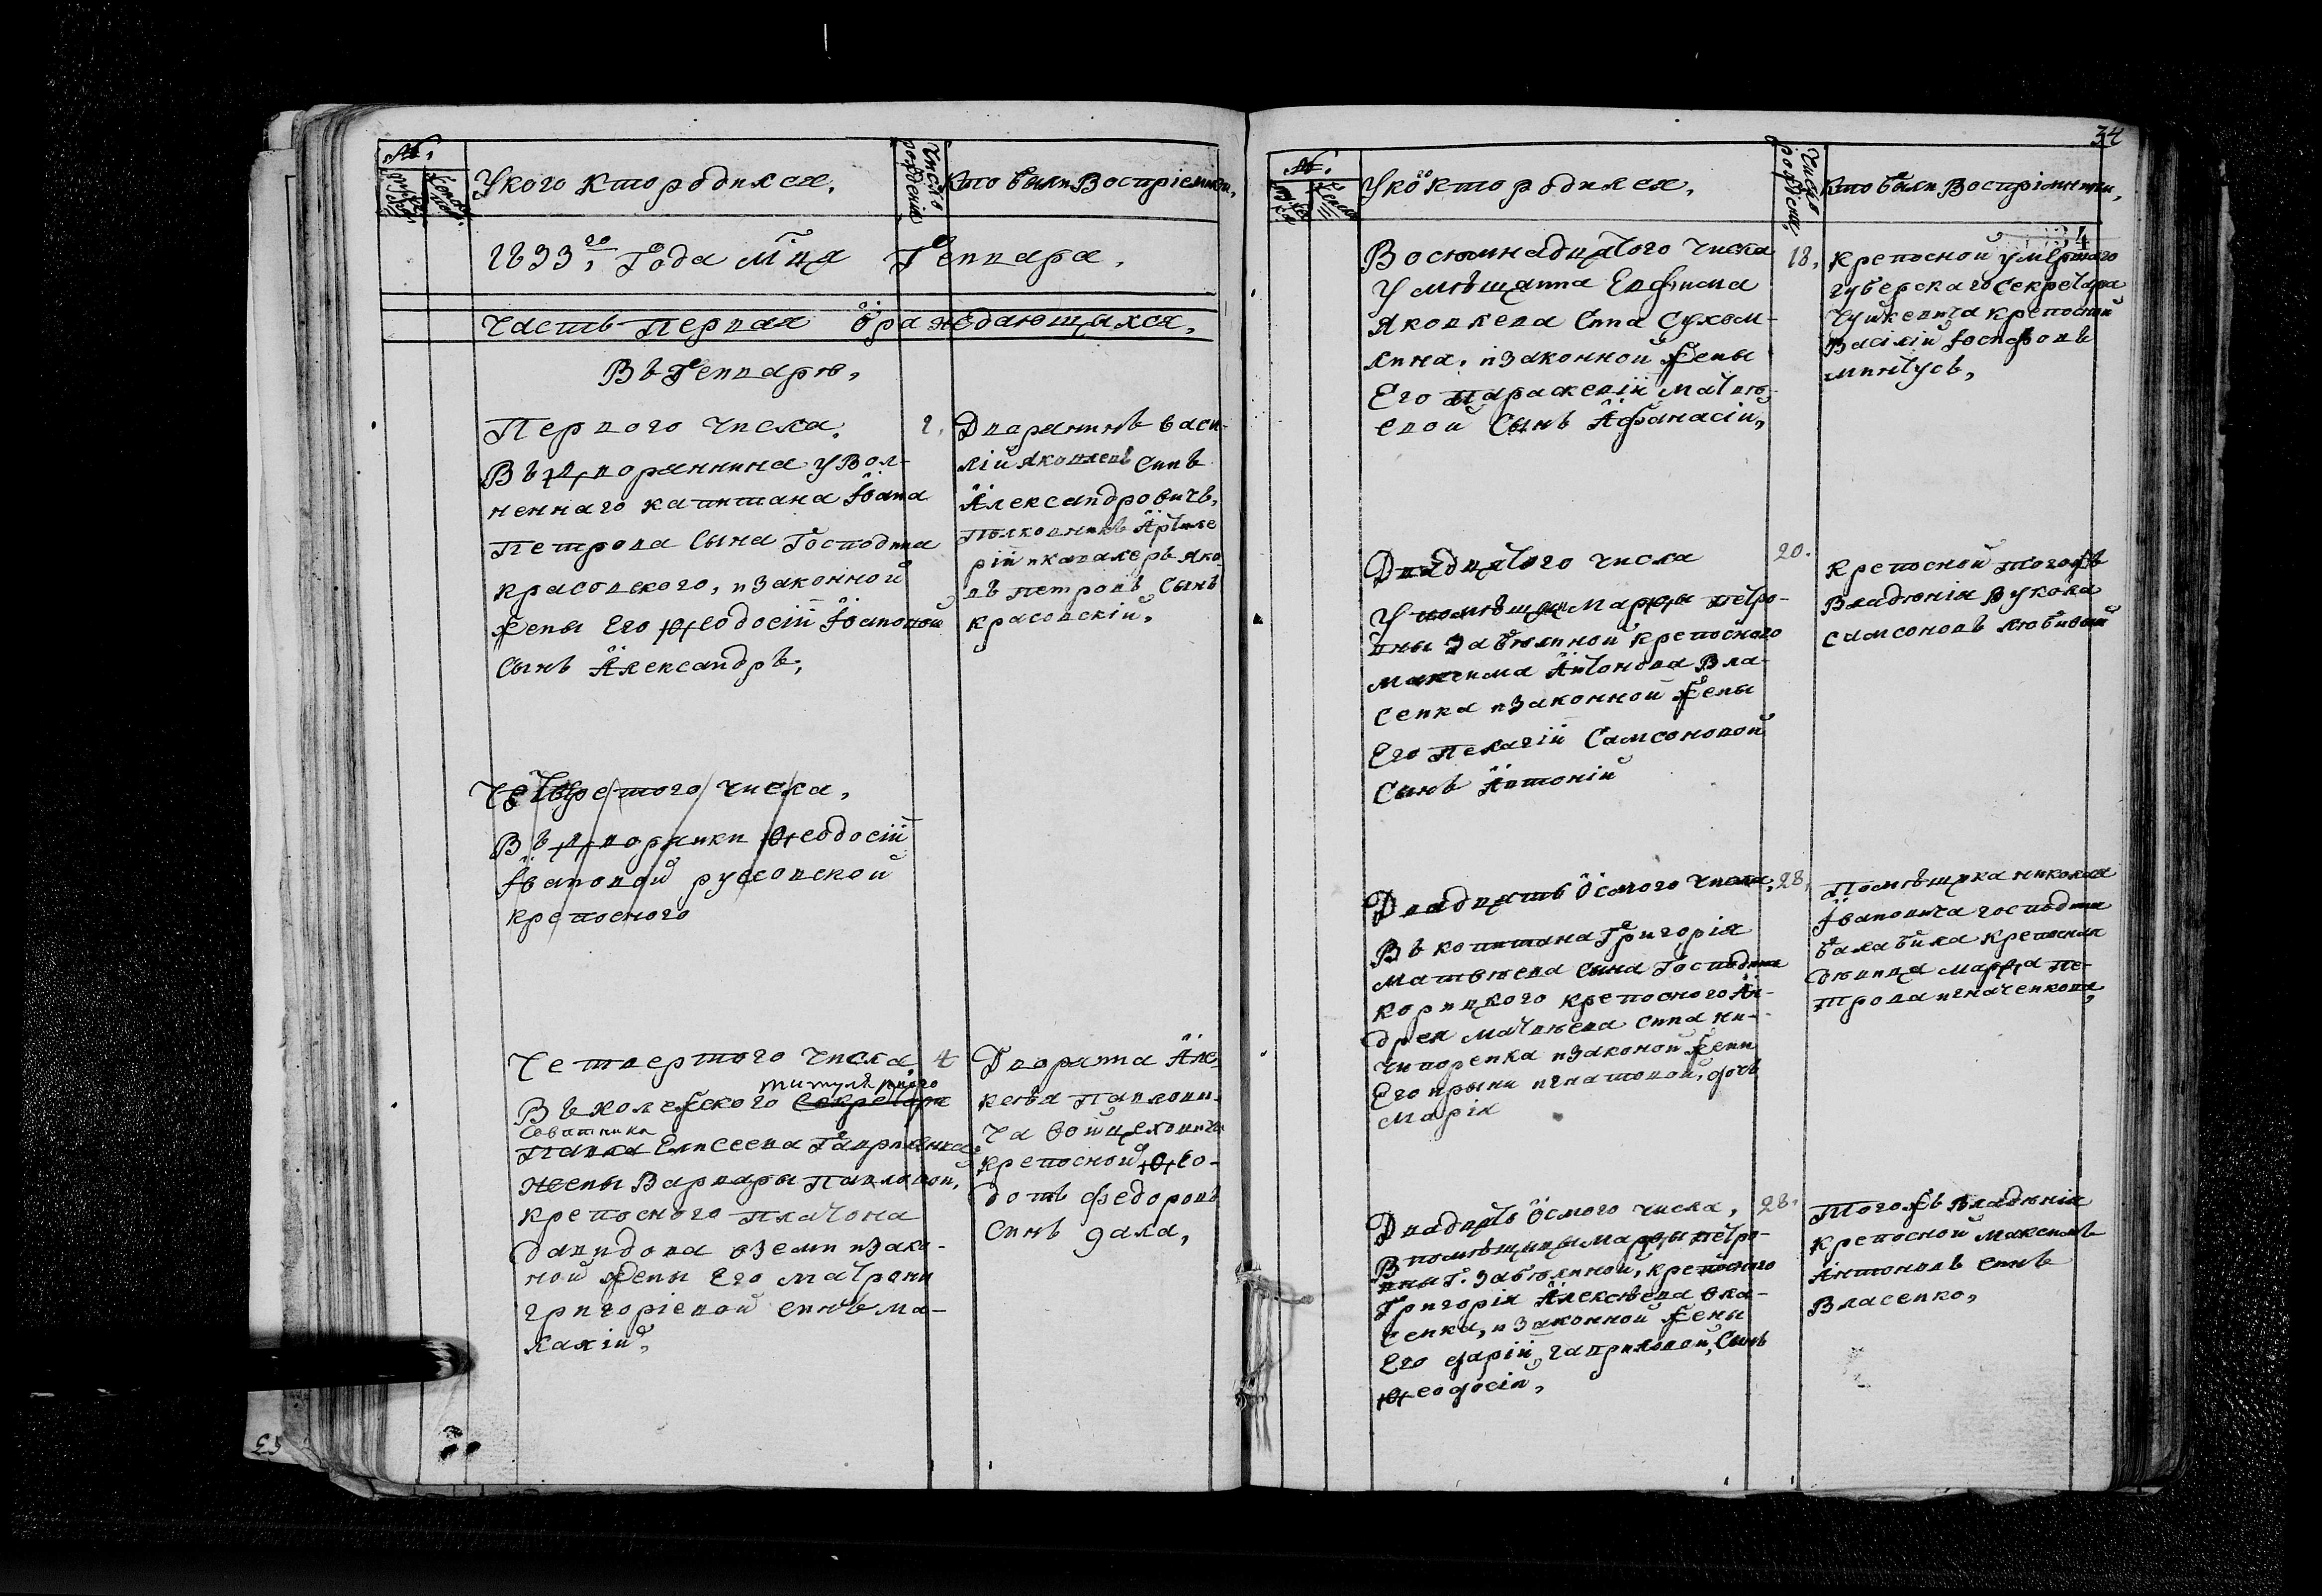 №.
Укого кто родился,
Число рожденія
Кто были Воспріемники,
1833го, Года мца Генваря,
Часть Первая ораждающихся,
Въ Генварѣ,
Первого числа,
1,
Въ Дворянина увол-
неннаго капитана Іоана
Петрова Сына Господина
красовского, изаконной
жены Его Ѳеодосіи Іоановой
Сынъ Александръ,
Дворянинъ васи-
лій яковлевъ Синъ
Александровичъ,
Полковникъ Артиле
ріи икавалеръ Яко
въ петровъ Сынъ
красовскій,
Четвертого числа,
Въ Дворянки Ѳеодосіи
Івановой русовской
крепосного
Четвертого Числа
4
титулярного
Въ колежского Секретаря
Советника
Павла Елисеева Гавриленка
жены Варвары Павловой,
крепосного Платона
давидова оземи изако-
ной жены Его Матрони
григоріевой синъ ма-
калій,
Дворянна Але
ксѣя Павлови-
ча войцеховича
крепосной Ѳео-
дотъ федоровъ
Синъ дала,
34
№.
Укого кто родился,
Число рожден,
Кто были Воспріемники,
34
Восемнадцятого числа
18,
У мѣщанина Евфима
Яковлева Сина Сухом-
лина, изаконной жены
Его Параскевіи матвѣ-
евой Сынъ Афанасій,
крепосной умершаго
губерскаго Секретаря
Чуйкевича крепостний
Василій Іосифовъ
минтусъ,
Двадцятого числа
20.
У помѣщицы Марѳы петро-
вны Забѣлиной крепосного
максима Антонова Вла-
сенка изаконной жены
Его Пелагіи Самсоновой
Сынъ Антоній
крепосной тогожъ
Владѣнія Вукола
самсоновъ любивый
Двадцять Осмого числа,
28,
Въ копитана Григорія
матвѣева сына Господина
корицкого крепосного Ан-
дрея матвѣева сина ни-
чипоренка изаконой жени
Его ирыни игнатовой, дочь
Марія
Помѣщика николая
Івановича господина
балабила крепосная
дѣвица марѳа пе-
трова игначенкова,
Двадцять Осмого числа,
28,
В помѣщицы Марѳы петро-
вны Г. Забѣлиной, крепосного
Григорія Алексѣева вла-
сенка, изаконной жены
Его дарій, гавриловой, Сынъ
Ѳеодосій,
Тогожъ Владѣнія
крепосной максимъ
Антоновъ синъ
Власенко,